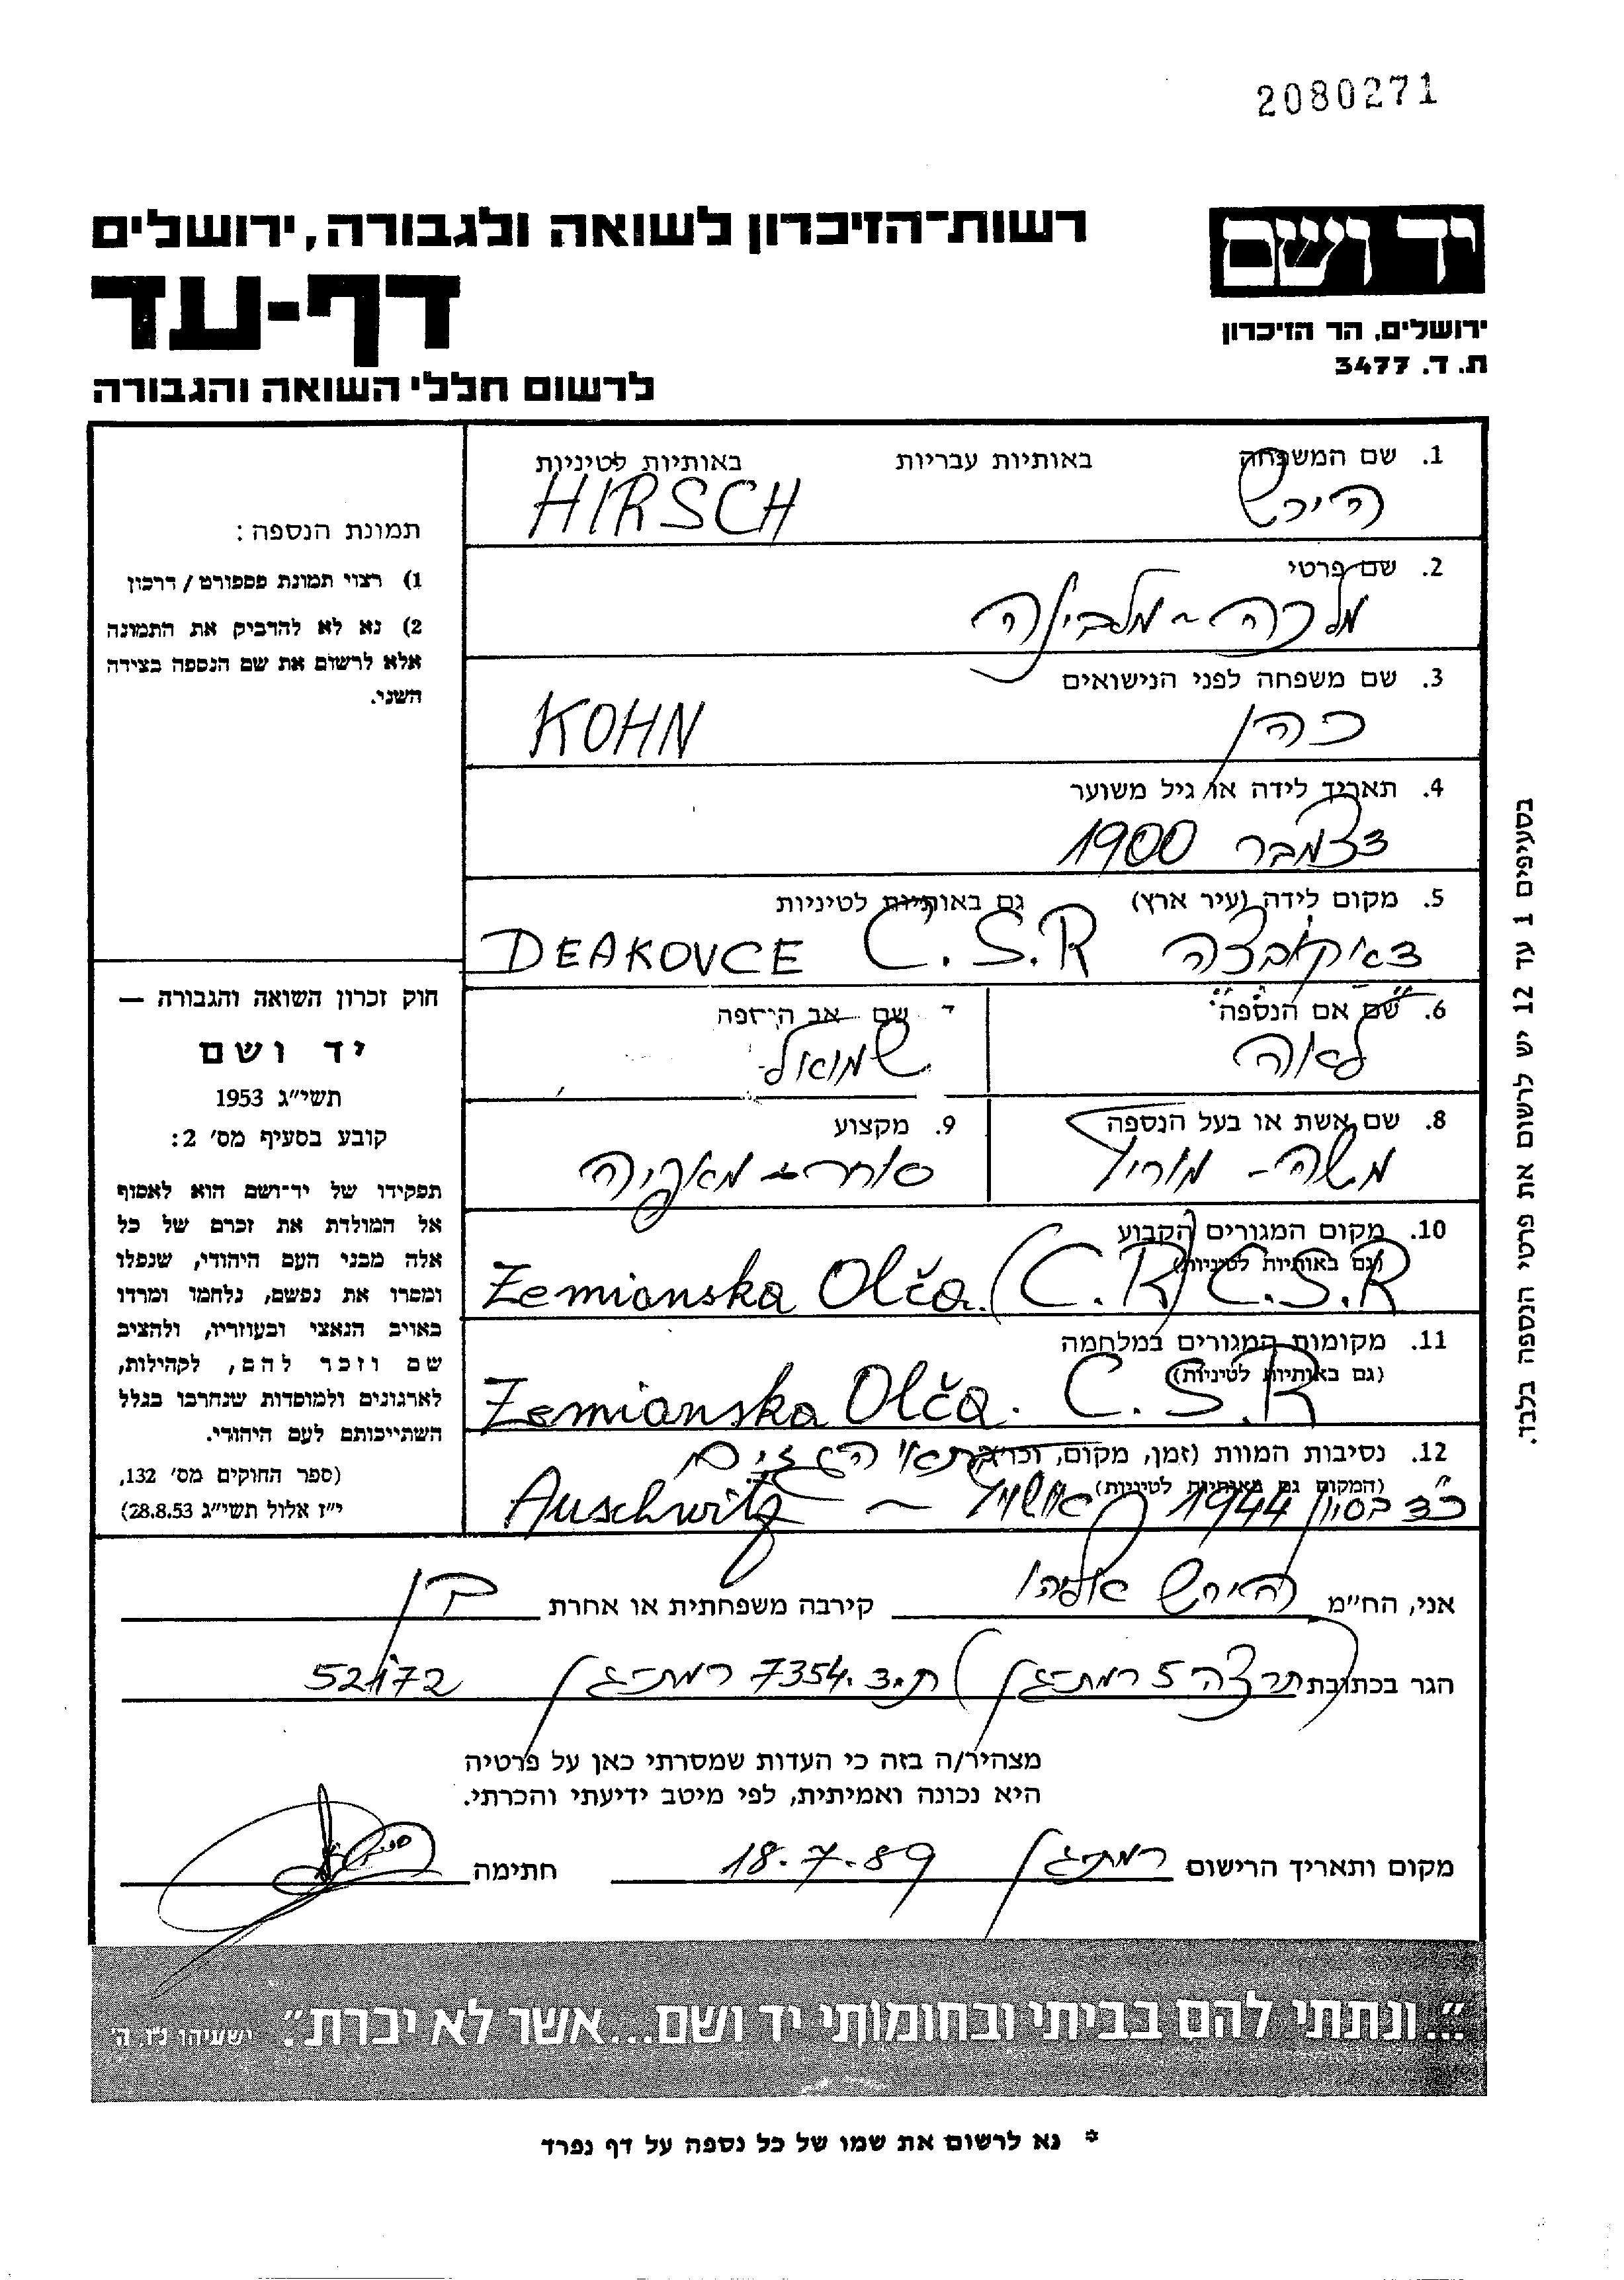 2080271
יד ושם
ירושלים, הר הזיכרון
ת. ד. 3477
רשות־הזיכרון לשואה ולגבורה, ירושלים
דף-עד
לרשום חללי השואה והגבורה
1. שם המשפחה באותיות עבריות באותיות לטיניות
הירש HIRSCH
2. שם פרטי
מלכה - מלבינה
3. שם משפחה לפני הנישואים
כהן KOHN
4. תאריך לידה או גיל משוער
דצמבר 1900
5. מקום לידה (עיר ארץ) גם באותיות לטיניות
דאקובצה DEAKOVCE C.S.R
6. שם אם הנספה
לאה
שם אב הנספה
שמואל
8. שם אשת או בעל הנספה
משה - מוריץ
9. מקצוע
סוחר - מאפיה
10. מקום המגורים הקבוע
(גם באותיות לטיניות)
Zemianska Olča. (C.R) C.S.R
11. מקומות המגורים במלחמה
(גם באותיות לטיניות)
Zemianska Olča. C.S.R
12. נסיבות המוות (זמן, מקום, וכו') תאי הגזים
(המקום גם באותיות לטיניות)
כ"ד בסיון 1944 אושויץ - Auschwitz
תמונת הנספה:
1) רצוי תמונת פספורט / דרכון
2) נא לא להדביק את התמונה
אלא לרשום את שם הנספה בצידה
השני.
חוק זכרון השואה והגבורה —
יד ושם
תשי״ג 1953
קובע בסעיף מס׳ 2:
תפקידו של יד־ושם הוא לאסוף
אל המולדת את זכרם של כל
אלה מבני העם היהודי, שנפלו
ומסרו את נפשם, נלחמו ומרדו
באויב הנאצי ובעוזריו, ולהציב
שם וזכר להם, לקהילות,
לארגונים ולמוסדות שנחרבו בגלל
השתייכותם לעם היהודי.
(ספר החוקים מס׳ 132,
י״ז אלול תשי״ג 28.8.53)
בסעיפים 1 עד 12 יש לרשום את פרטי הנספה בלבד.
אני, הח״מ הירש אליהו קירבה משפחתית או אחרת בן
הגר בכתובת תרצה 5 רמת-גן (ת.ד. 7354 רמת-גן 52172
מצהיר/ה בזה כי העדות שמסרתי כאן על פרטיה
היא נכונה ואמיתית, לפי מיטב ידיעתי והכרתי.
מקום ותאריך הרישום רמת-גן 18.7.89 חתימה
"...ונתתי להם בביתי ובחומותי יד ושם...אשר לא יכרת". ישעיהו נ״ו, ה׳
* נא לרשום את שמו של כל נספה על דף נפרד